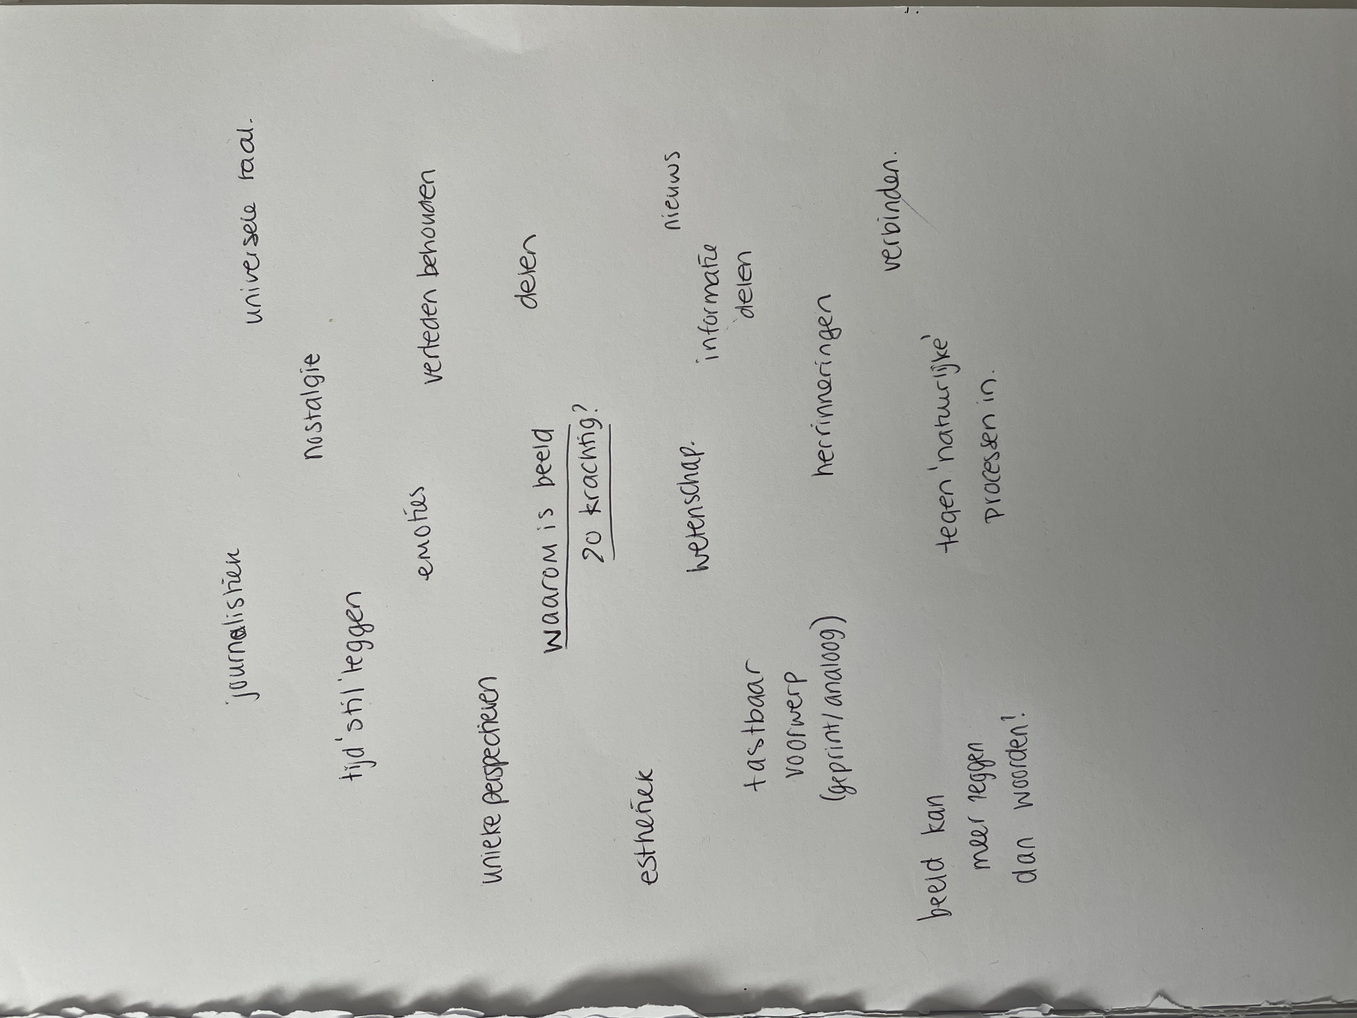 journalistiek
universele taal.
nostalgie
tijd 'stil' leggen
emoties
verleden behouden
unieke perspectieven
delen
waarom is beeld
zo krachtig?
esthetiek
wetenschap.
nieuws
informatie
delen
tastbaar
voorwerp
(geprint/analoog)
herrinneringen
verbinden.
beeld kan
meer zeggen
dan woorden!
tegen 'natuurlijke'
processen in.